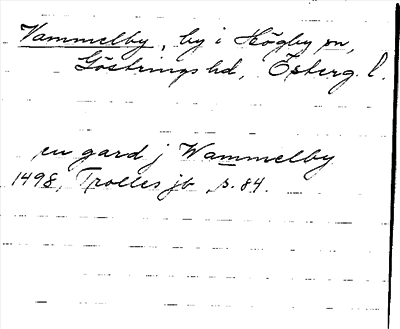 Vammelby, by i Högby sn,
Göstrings hd, Österg. l.
en gard j Wammelby
1498, Trolles jb s. 84.